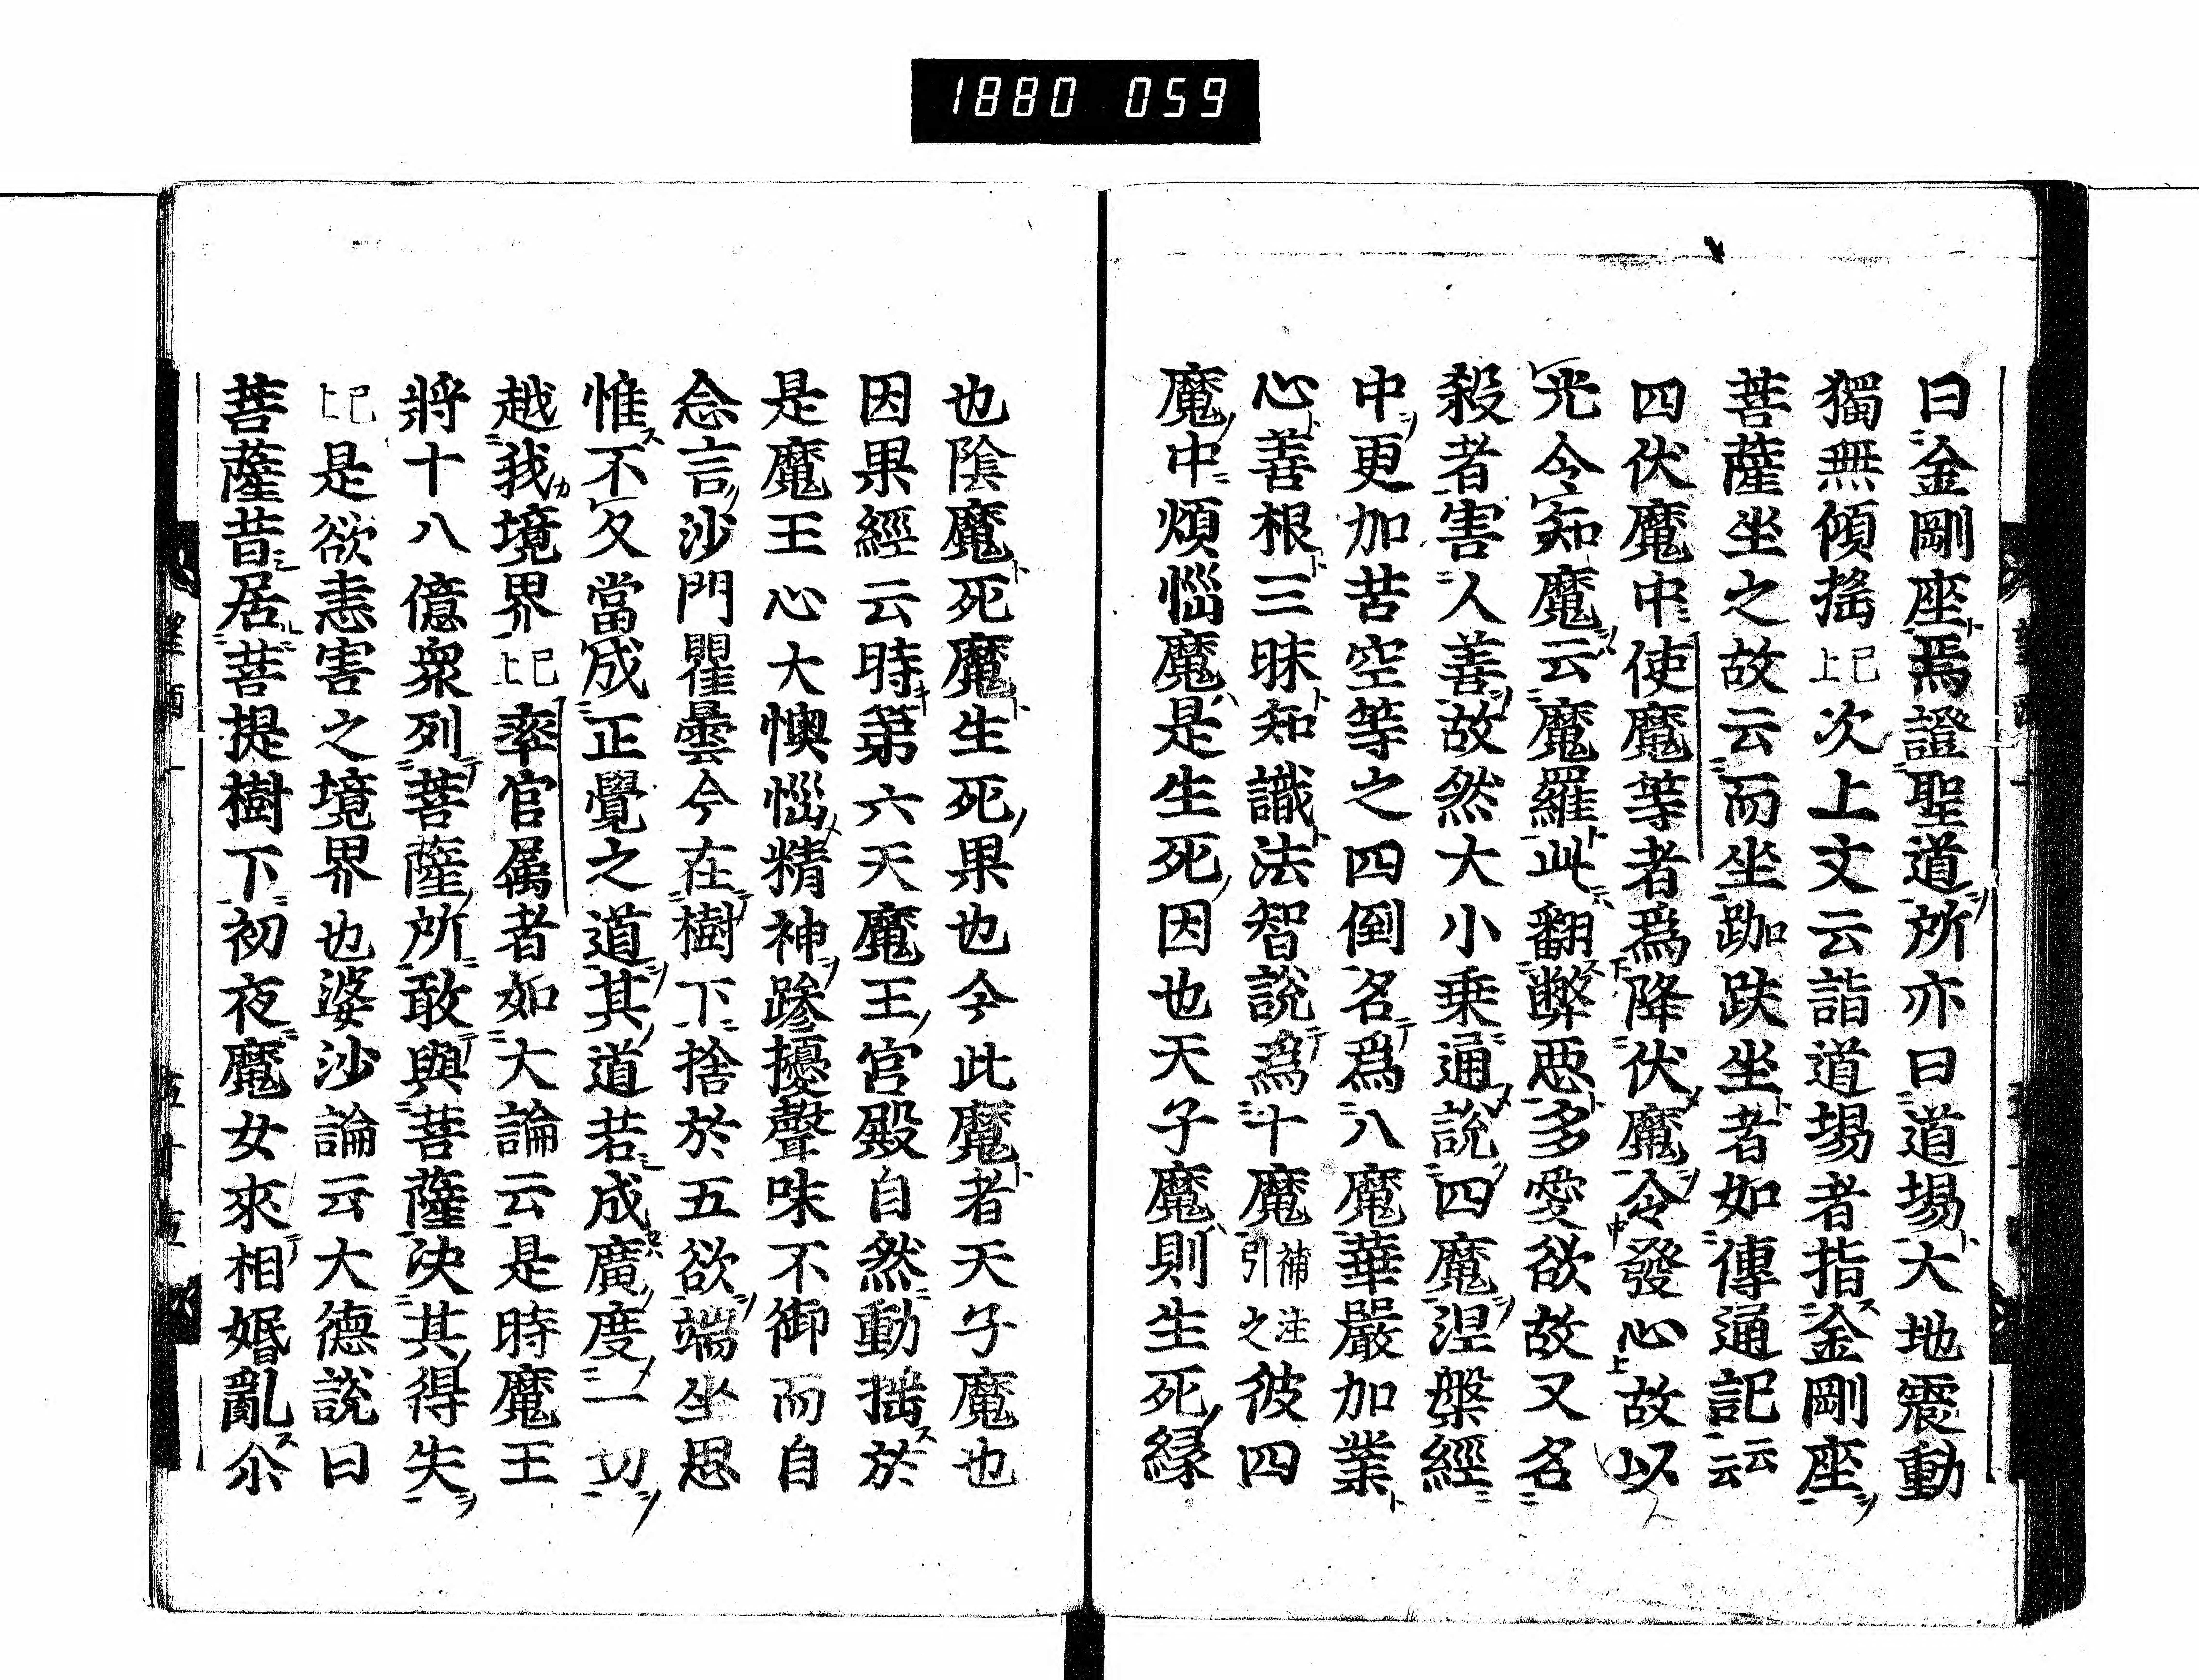 1880 059
曰金剛座焉證聖道所亦曰道場大地震動
獨無傾搖已上次上文云詣道場者指金剛座
菩薩坐之故云而坐跏趺坐者如傳通記云云
四伏魔中使魔等者爲降伏魔令發心故以
光令知魔云魔羅此翻弊惡多愛欲故又名
殺者害人善故然大小乘通說四魔涅槃經
中更加苦空等之四倒名爲八魔華嚴加業
心善根三昧知識法智說爲十魔補注引之彼四
魔中煩惱魔是生死因也天子魔則生死緣
也陰魔死魔生死果也今此魔者天子魔也
因果經云時第六天魔王宮殿自然動搖於
是魔王心大懊惱精神躁擾聲味不御而自
念言沙門瞿曇今在樹下捨於五欲端坐思
惟不久當成正覺之道其道若成廣度一切
越我境界已上率官屬者如大論云是時魔王
將十八億衆列菩薩所敢與菩薩決其得失
已上是欲恚害之境界也婆沙論云大德說曰
菩薩昔居菩提樹下初夜魔女來相婚亂尒